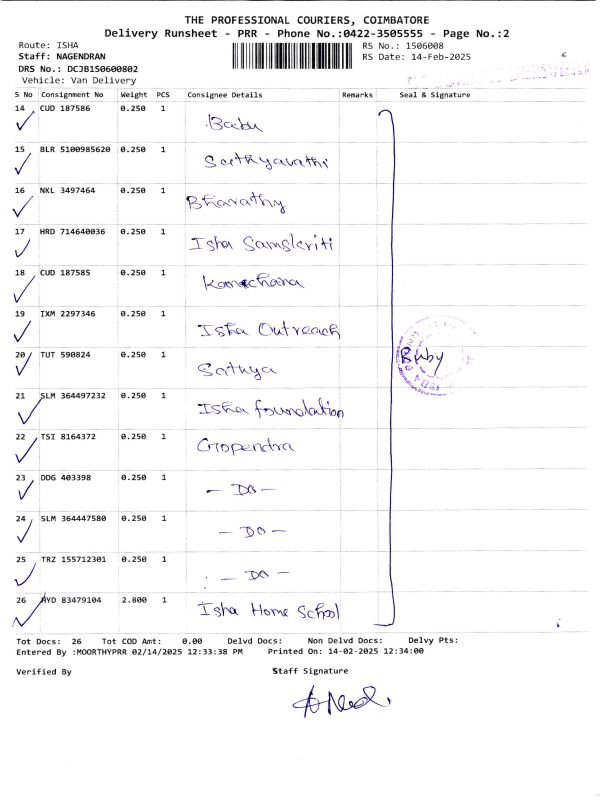 THE PROFESSIONAL COURIERS, COIMBATORE
Delivery Runsheet - PRR - Phone No.:0422-3505555 - Page No.:2
Route: ISHA
RS No.: 1506008
Staff: NAGENDRAN
RS Date: 14-Feb-2025
DRS No.: DCJB150600802
Vehicle: Van Delivery
S No Consignment No Weight PCS Consignee Details Remarks Seal & Signature
14 CUD 187586 0.250 1 Babu
15 BLR 5100985620 0.250 1 Sathyavathi
16 NKL 3497464 0.250 1 Bharathy
17 HRD 714640036 0.250 1 Isha Samskriti
18 CUD 187585 0.250 1 Kanchana
19 IXM 2297346 0.250 1 Isha Outreach
20 TUT 590824 0.250 1 Sathya
21 SLM 364497232 0.250 1 Isha foundation
22 TSI 8164372 0.250 1 Gopendra
23 DDG 403398 0.250 1 - DO -
24 SLM 364447580 0.250 1 - DO -
25 TRZ 155712301 0.250 1 - DO -
26 HYD 83479104 2.800 1 Isha Home School
Tot Docs: 26 Tot COD Amt: 0.00 Delvd Docs: Non Delvd Docs: Delvy Pts:
Entered By :MOORTHYPRR 02/14/2025 12:33:38 PM Printed On: 14-02-2025 12:34:00
Verified By Staff Signature